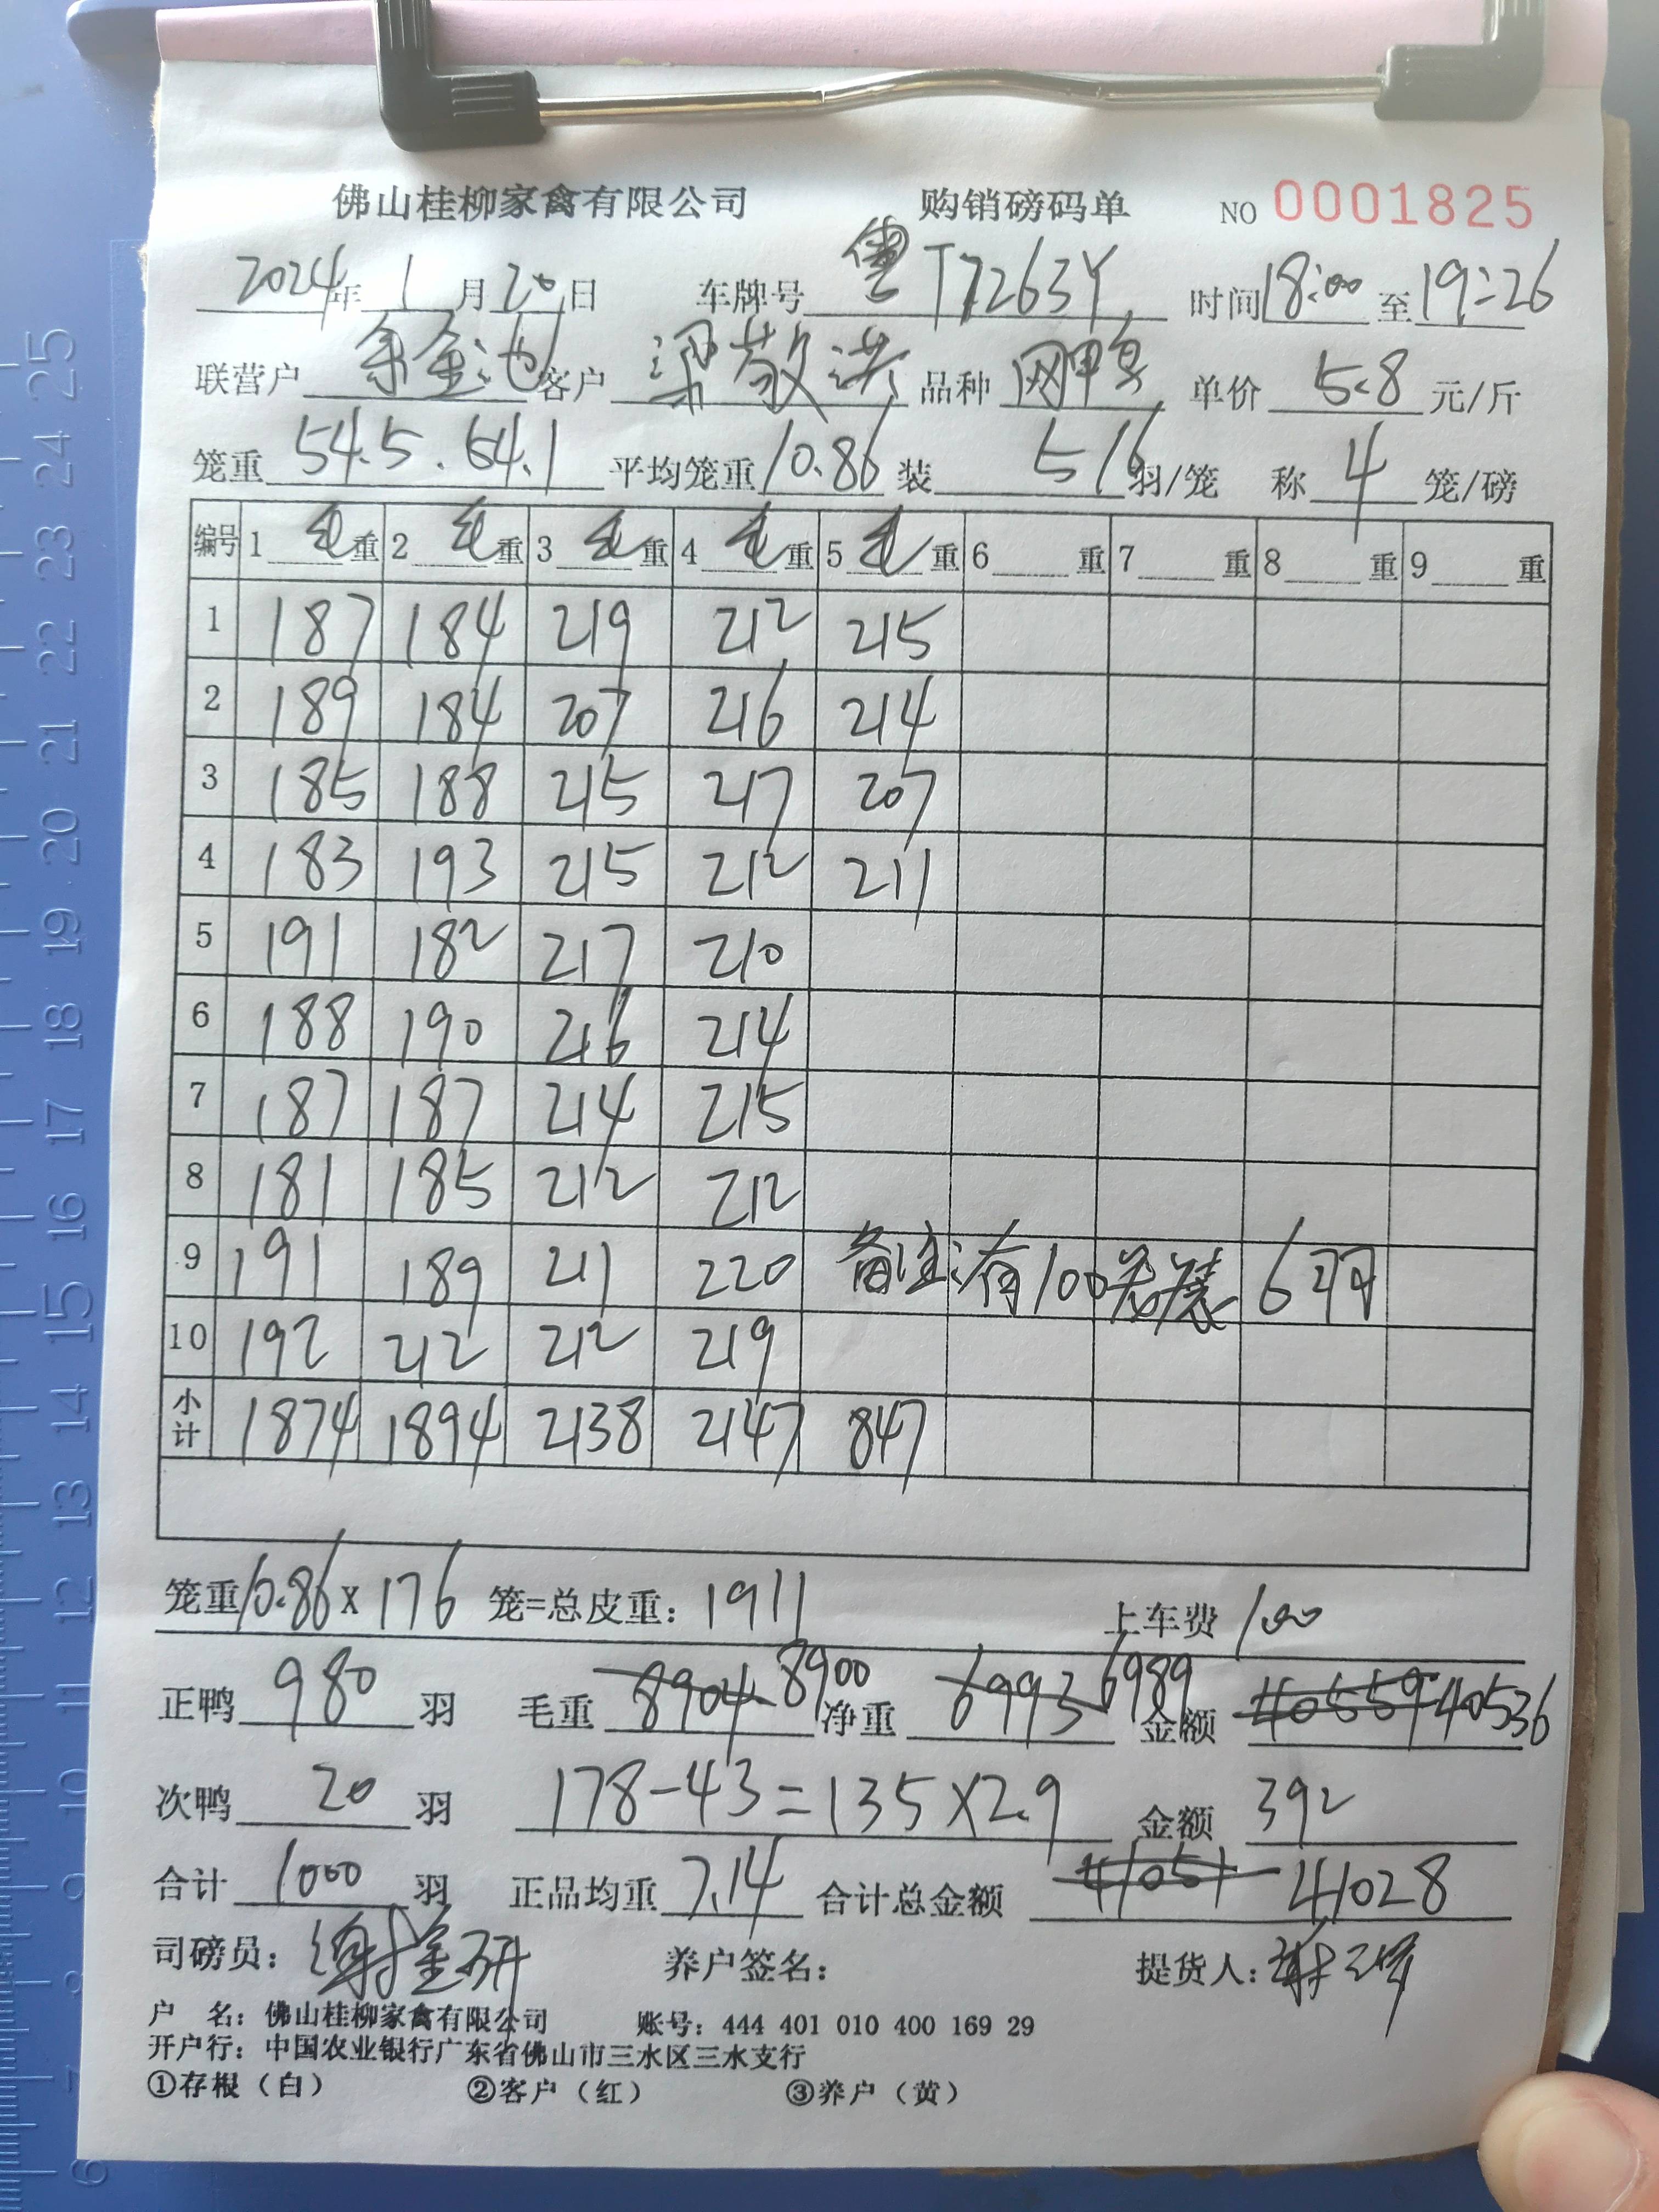 佛山桂柳家禽有限公司 购销磅码单 NO 0001825
2024年 1月20日 车牌号 粤T7263Y 时间18:00至19:26
联营户 余金池 客户 梁敬洪 品种 网鸭 单价 5.8 元/斤
笼重 54.5.54.1 平均笼重 10.86 装 5/6 羽/笼 称 4 笼/磅
编号 1 毛重 2 毛重 3 毛重 4 毛重 5 毛重 6 重 7 重 8 重 9 重
1 187 184 219 212 215
2 189 184 207 216 214
3 185 188 215 217 207
4 183 193 215 212 211
5 191 182 217 210
6 188 190 216 214
7 187 187 214 215
8 181 185 212 212
9 191 189 211 220 备注:有100笼装6羽
10 192 212 212 219
小计 1874 1894 2138 2147 847
笼重10.86x176 笼=总皮重：1911 上车费 100
正鸭 980 羽 毛重 8904 8900 净重 6993 6989 金额 40559 40536
次鸭 20 羽 178-43=135×2.9 金额 392
合计 1000 羽 正品均重 7.14 合计总金额 41051 41028
司磅员： 养户签名： 提货人：
户 名：佛山桂柳家禽有限公司 账号：444 401 010 400 169 29
开户行：中国农业银行广东省佛山市三水区三水支行
①存根（白） ②客户（红） ③养户（黄）
25
24
23
22
21
20
19
18
17
16
15
14
13
12
11
10
9
8
7
6